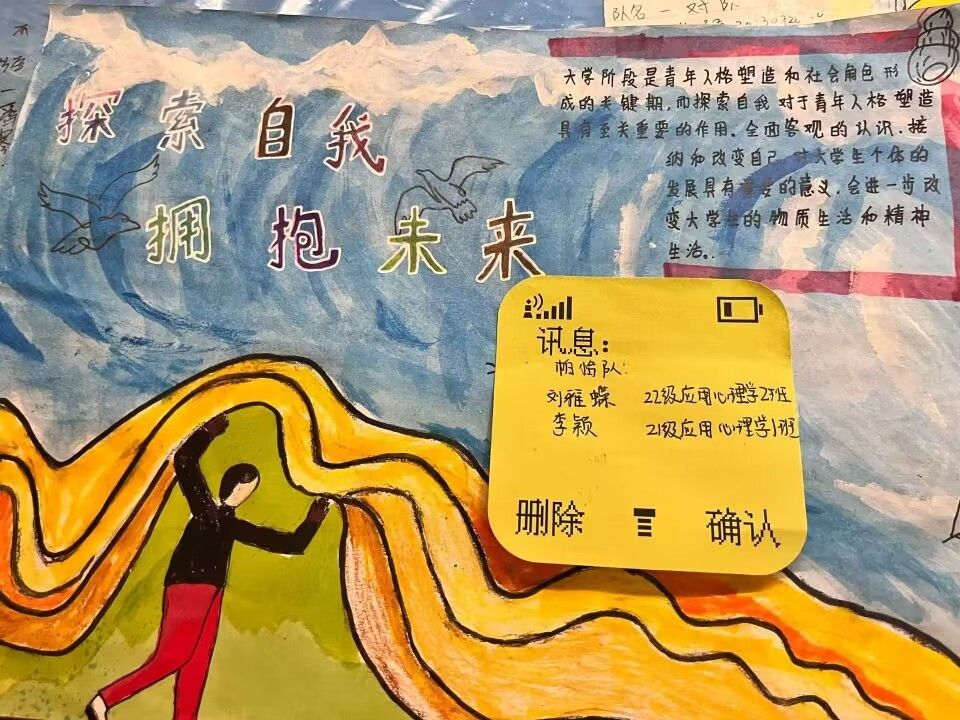 队名
探索自我
拥抱未来
大学阶段是青年人格塑造和社会角色形
成的关键期,而探索自我对于青年人格塑造
具有至关重要的作用。全面客观的认识、接
纳和改变自己,对大学生个体的
发展具有重要的意义,会进一步改
变大学生的物质生活和精神
生活。
讯息:
帕恰队:
刘雅蝶 22级应用心理学2班
李颖 21级应用心理学1班
删除 确认